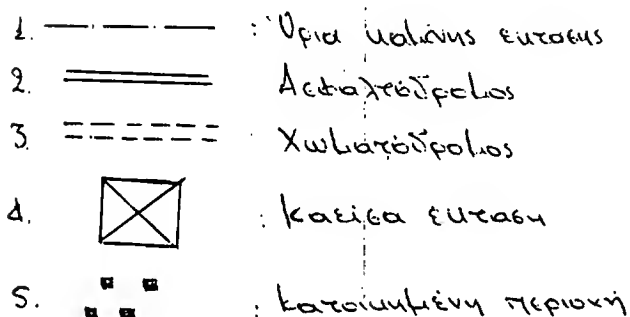 1. : Όρια καμένης εκτασης
2. Ασφαλτόδρομος
3. Χωματόδρομος
4. : Καείσα έκταση
5. : Κατοικημένη περιοχή